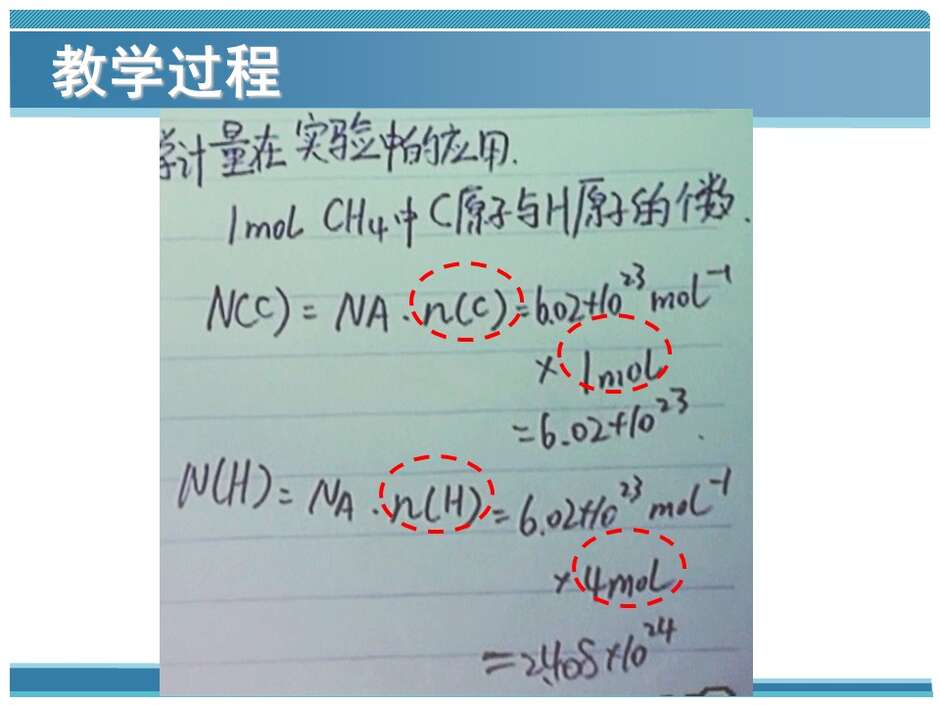 教学过程
学计量在实验中的应用.
1mol CH₄中C原子与H原子的个数.
N(C) = NA · n(C) = 6.02×10²³ mol⁻¹
× 1mol
= 6.02×10²³.
N(H) = NA · n(H) = 6.02×10²³ mol⁻¹
× 4mol
= 2.408×10²⁴